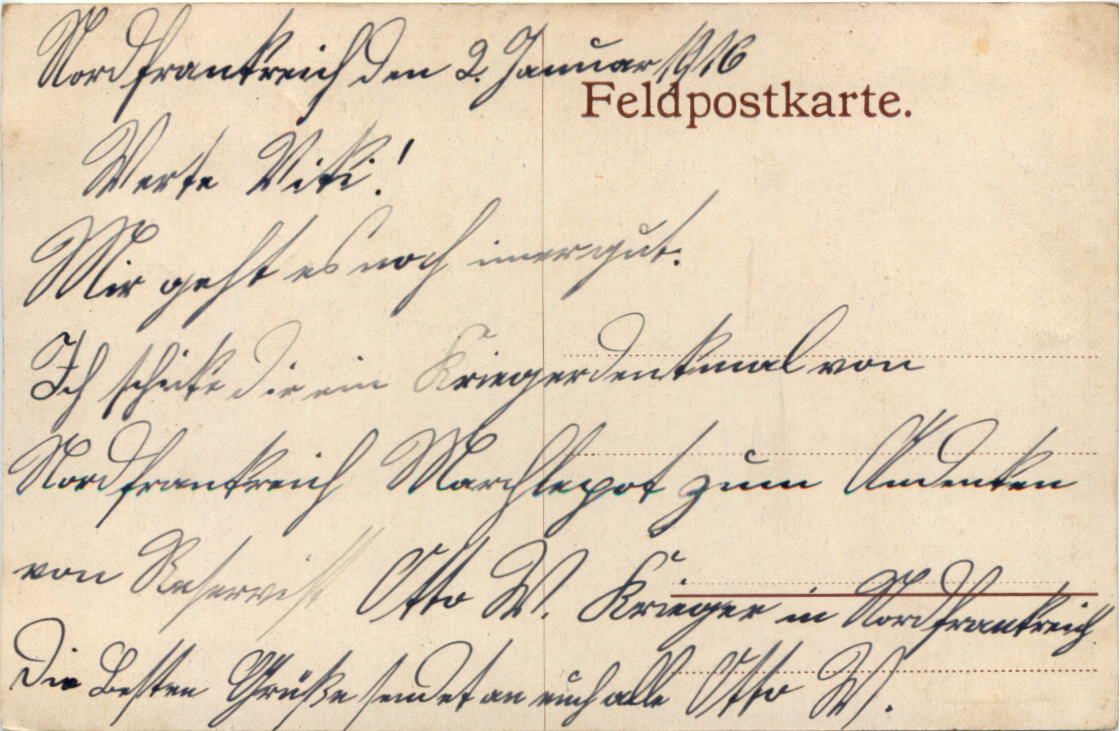 Nordfrankreich den 2. Januar 1916
Feldpostkarte.
Werte Viki!
Mir geht es noch imer gut.
Ich schike dir ein Kriegerdenkmal von
Nordfrankreich Marchlepot zum Andenken
von Reservist Otto W. Krieger in Nordfrankreich
Die Besten Grüße sendet an euch alle Otto W.